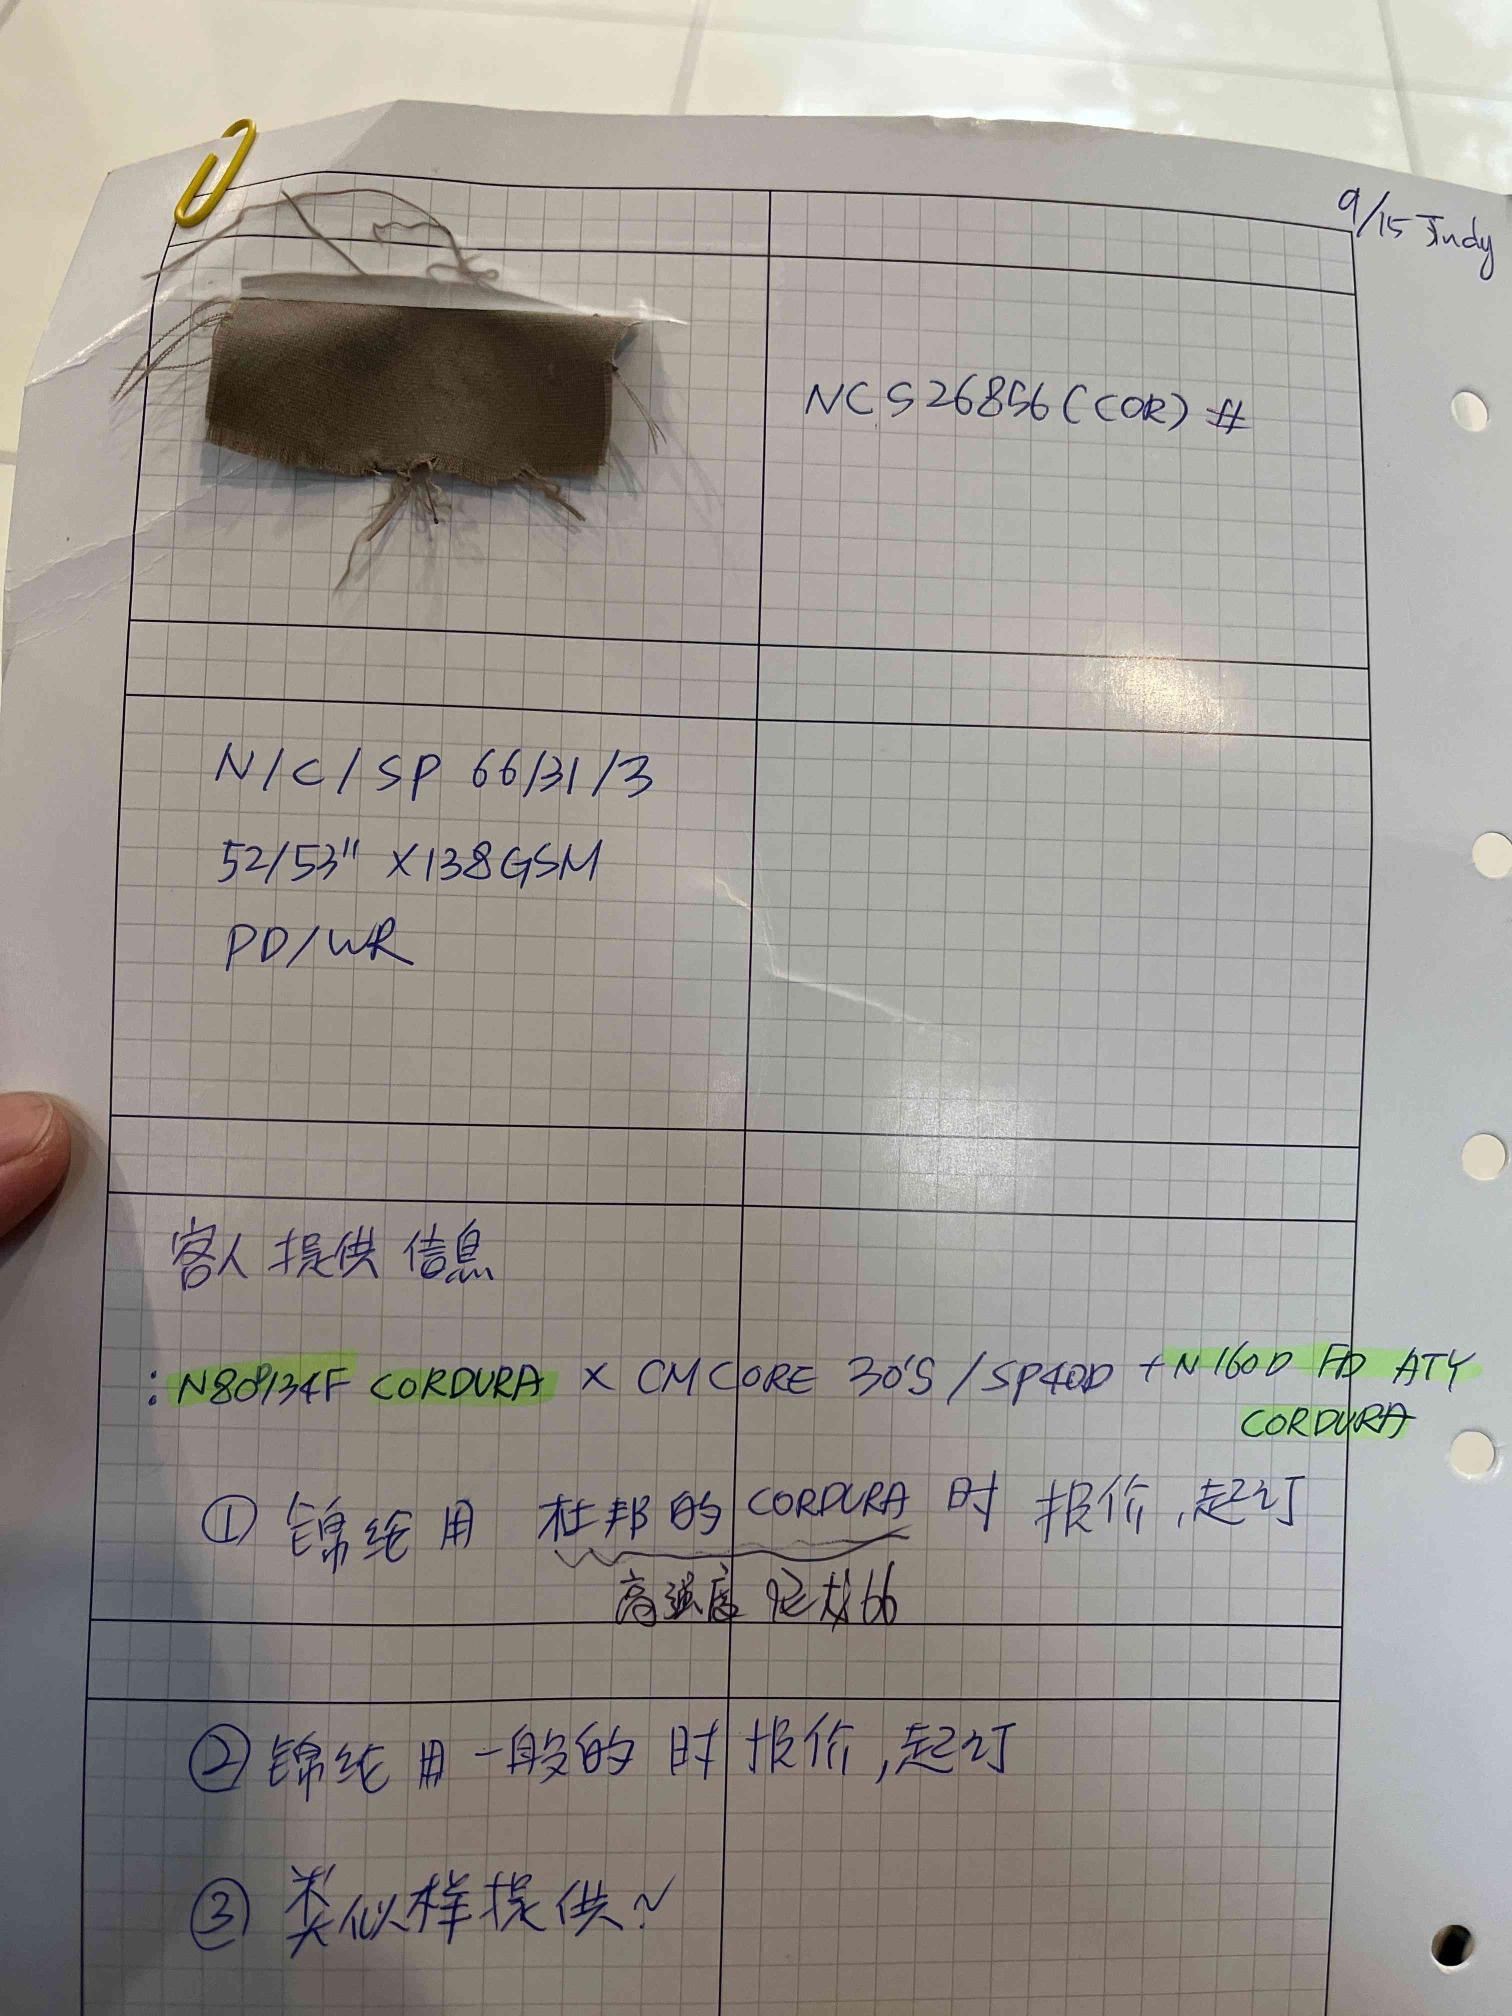 9/15 Jindy
NCS26856(COR)#
N/C/SP 66/31/3
52/53" X138GSM
PD/WR
客人提供信息
: N80D/34F CORDURA × CM CORE 30'S/SP40D + N160D FD ATY
CORDURA
① 锦纶用 杜邦的 CORDURA 时 报价,起订
高强度 尼龙66
② 锦纶用一般的 时 报价,起订
③ 类似样提供~